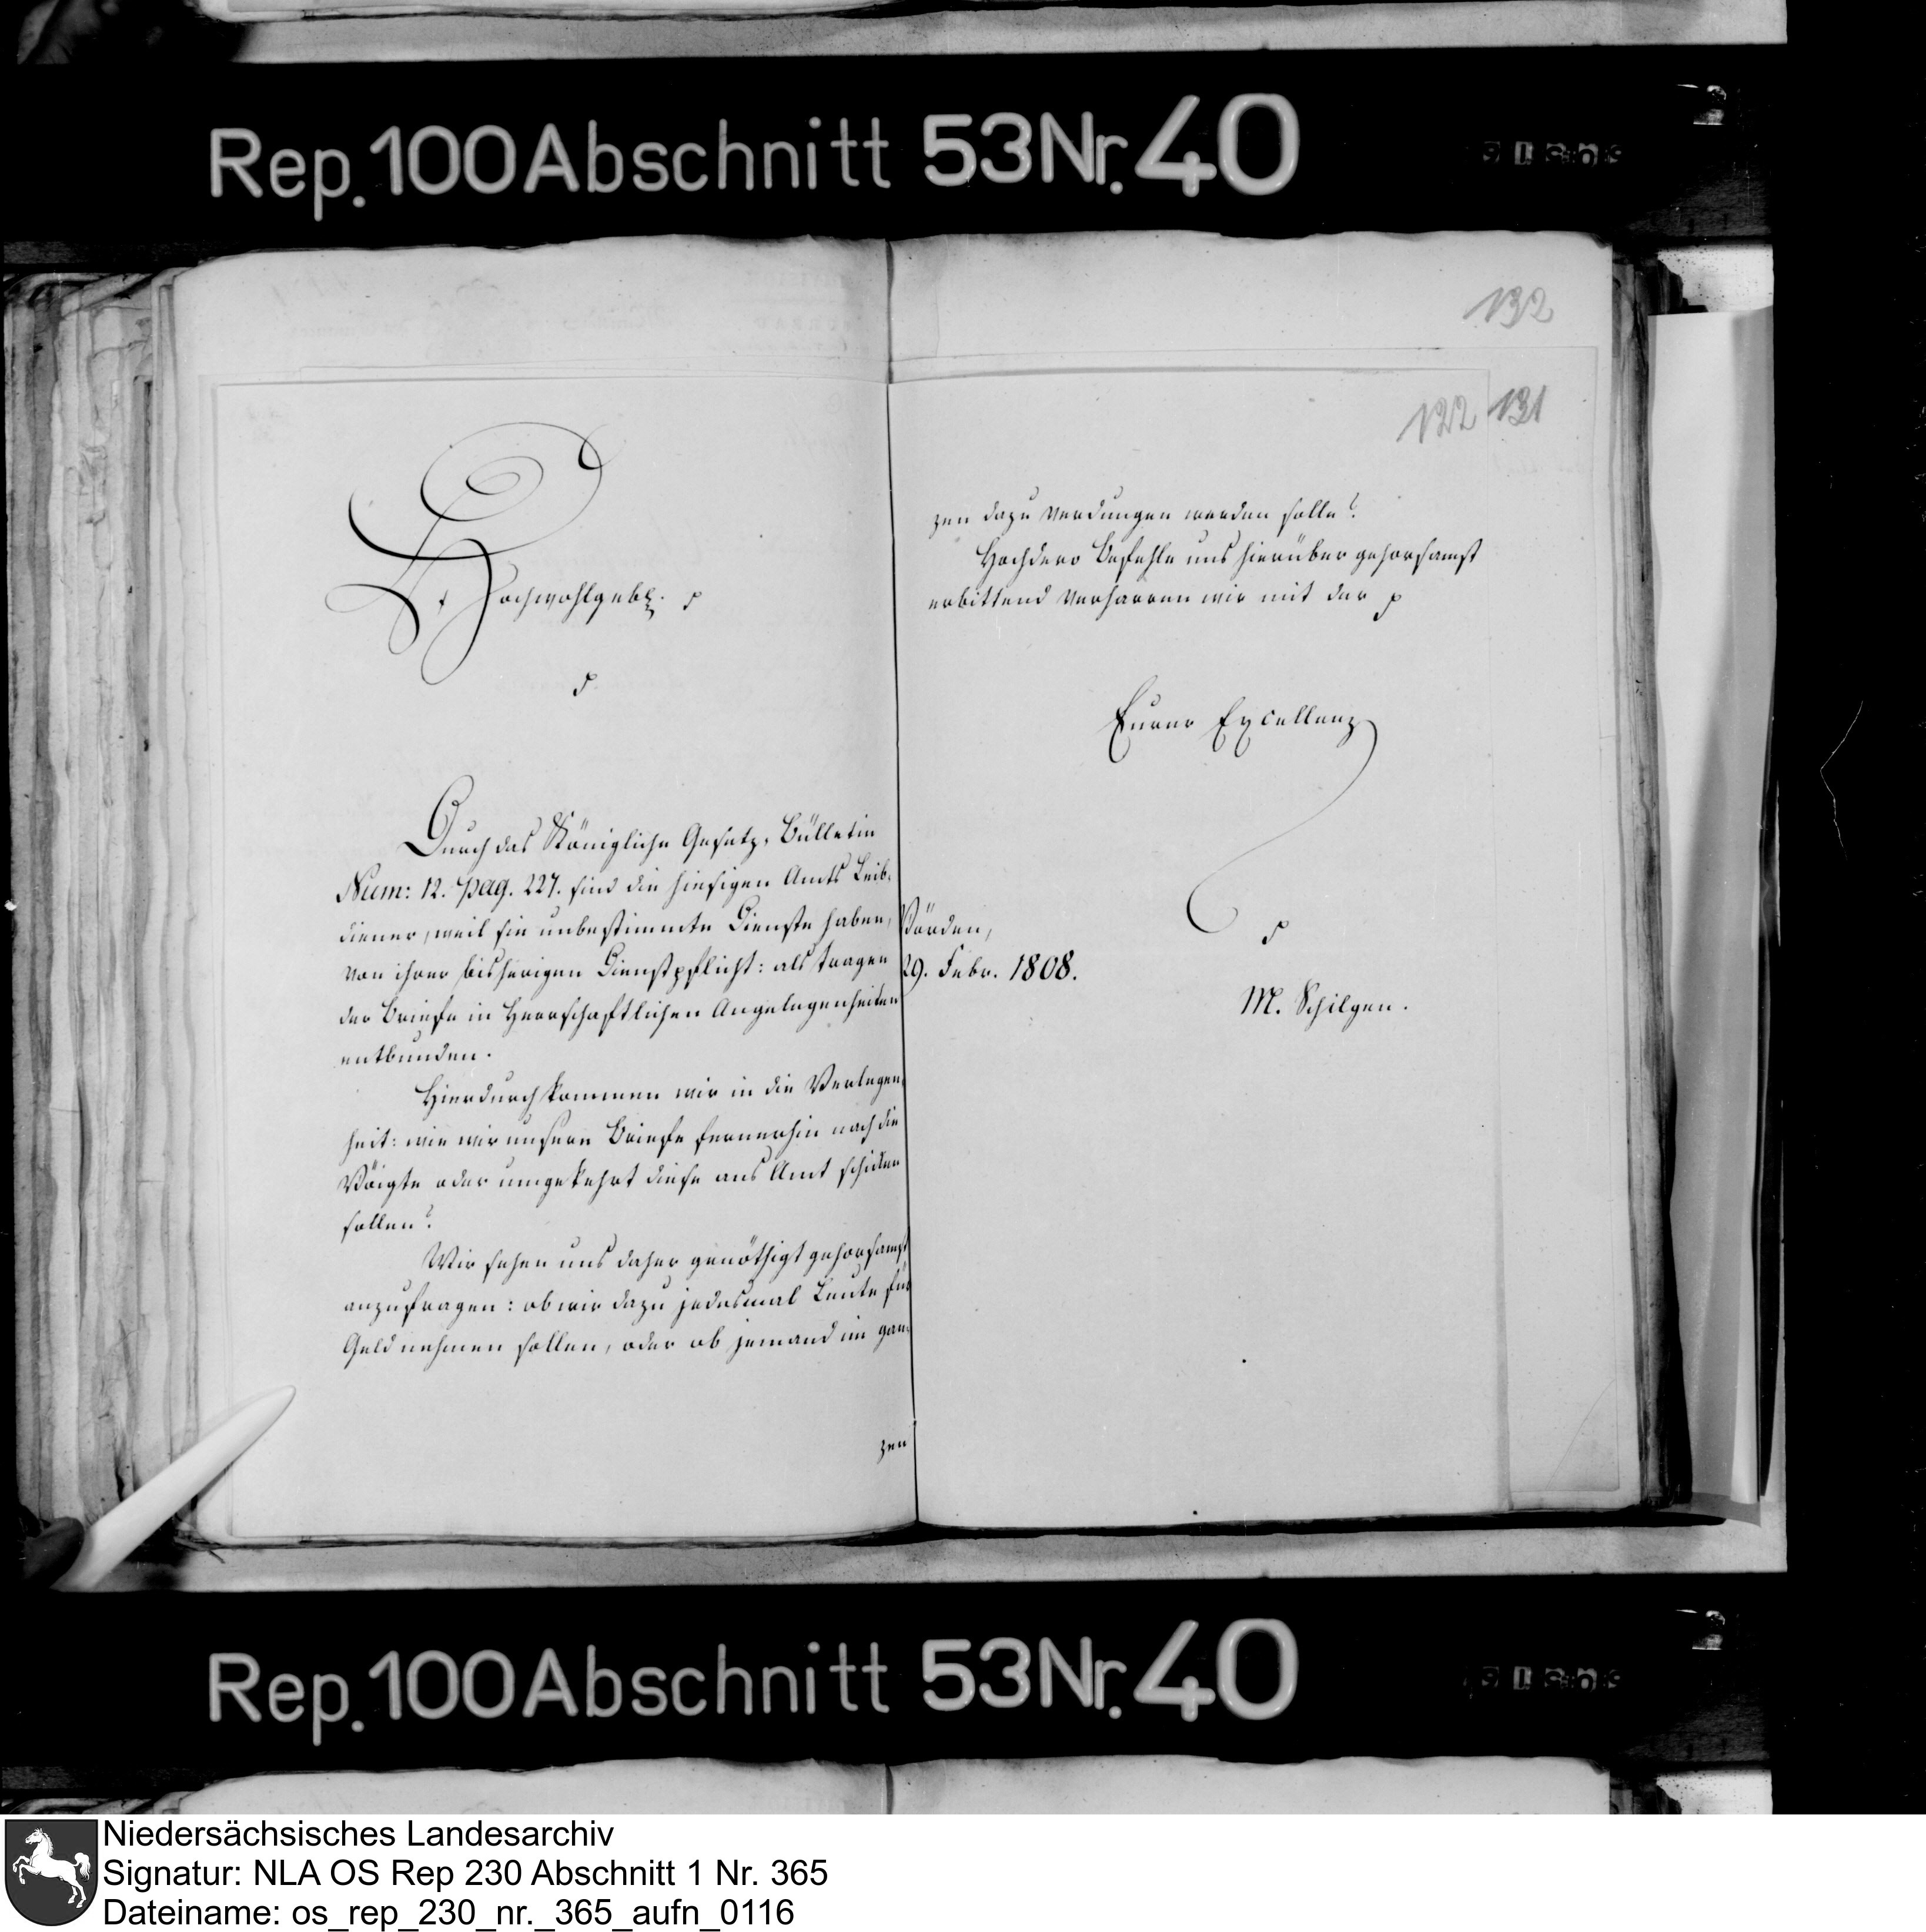 Rep. 100 Abschnitt 53 Nr. 40
132
122 131
Hochwohlgebr. p
p
Durch das Königliche Gesetz-Bülletin
Num: 12. pag. 227. sind die hiesigen Amts Leib-
diener, weil sie unbestimmte Dienste haben,
von ihrer bisherigen Dienstpflicht: als tragen
der Briefe in Herrschaftlichen Angelegenheiten
entbunden.
Hierdurch kommen wir in die Verlegen-
heit: wie wir unsere Briefe fernerhin nach die
Vöigte oder umgekehrt diese ans Amt schicken
sollen?
Wir sehen uns daher genöthigt gehorsamst
anzufragen: ob wir dazu jedesmal Leute für
Geld nehmen sollen, oder ob jemand im gan-
zen
zen dazu verdungen werden solle?
Hochdero Befehle uns hierüber gehorsamst
erbittend verharren wir mit der p
Eurer Excellenz
p
Vörden,
29. Febr. 1808.
M. Schilgen.
Rep. 100 Abschnitt 53 Nr. 40
Niedersächsisches Landesarchiv
Signatur: NLA OS Rep 230 Abschnitt 1 Nr. 365
Dateiname: os_rep_230_nr._365_aufn_0116